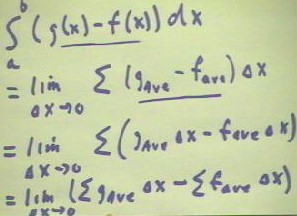 ∫ₐᵇ (g(x) - f(x)) dx
= lim Δx→0 Σ (gAve - fave) Δx
= lim Δx→0 Σ (gAve Δx - fave Δx)
= lim Δx→0 (Σ gAve Δx - Σ fave Δx)